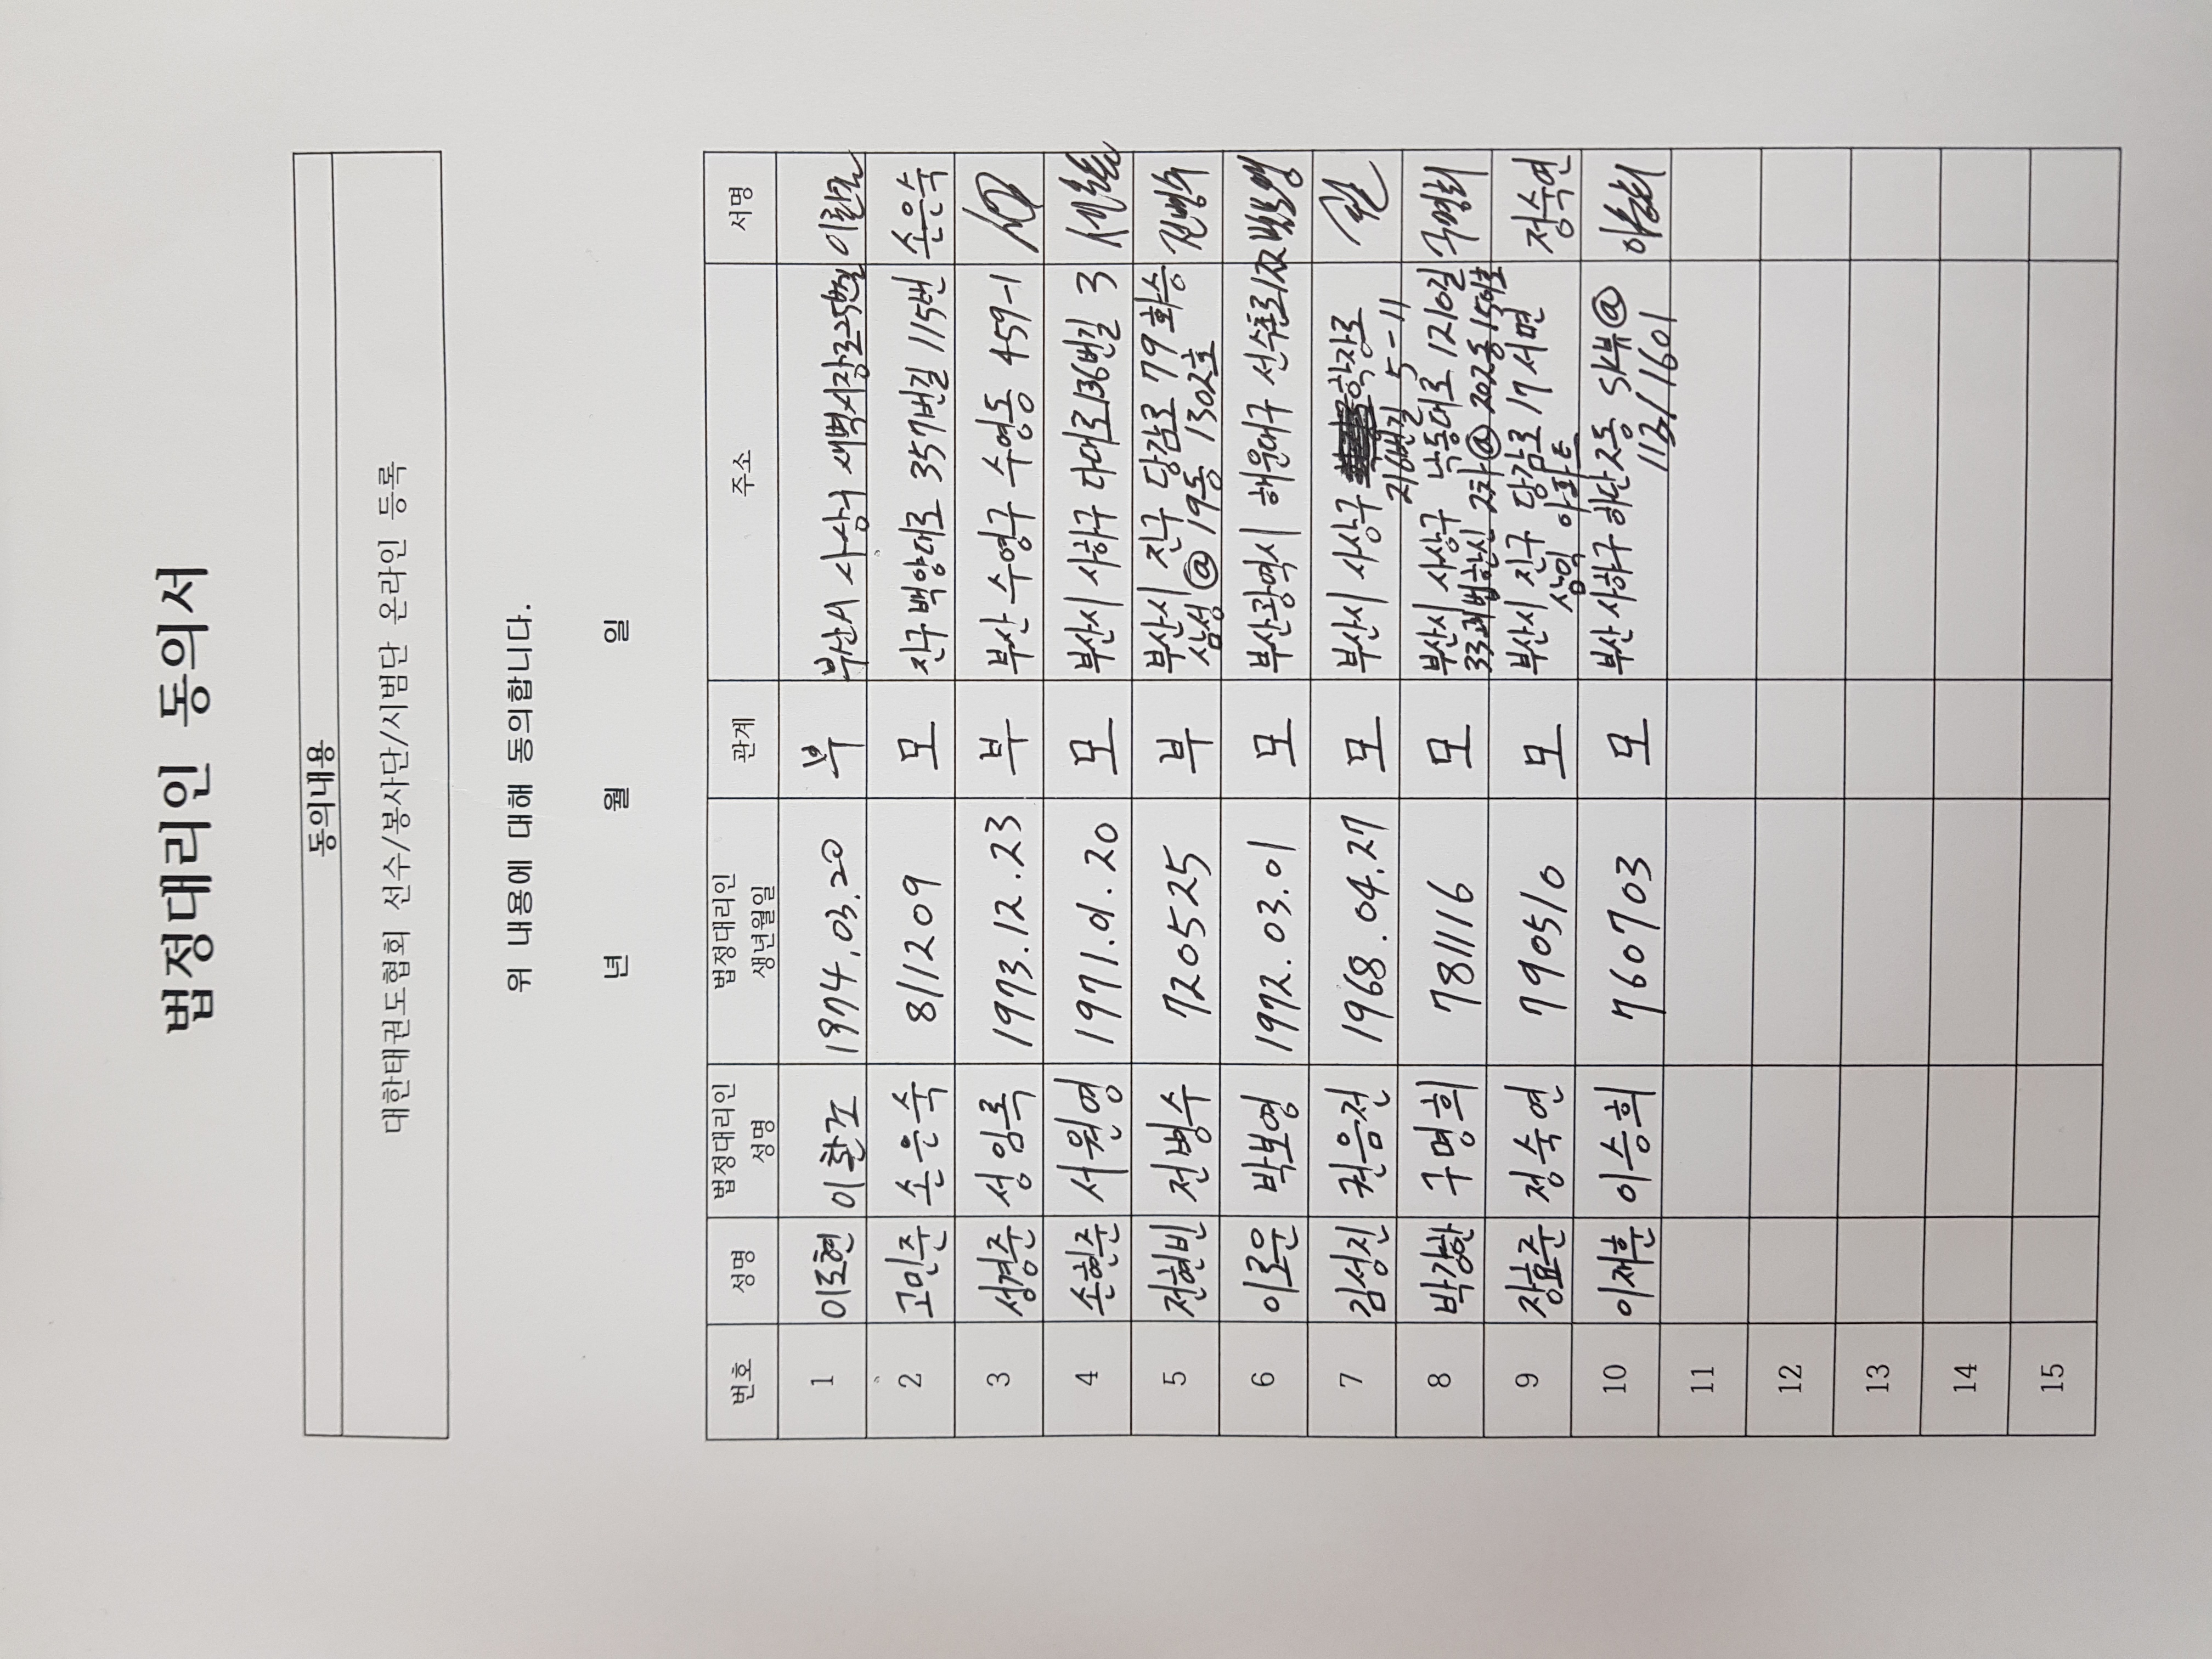 법정대리인 동의서
동의내용
대한태권도협회 선수/봉사단/시범단 온라인 등록
위 내용에 대해 동의합니다.
년 월 일
번호 성명 법정대리인 성명 법정대리인 생년월일 관계 주소 서명
1 이도현 이환조 1974.03.20 부 부산시 사상구 새벽시장로25번길
2 고민주 손은숙 811209 모 진구 백양대로 357번길 115번 손은숙
3 성경준 성임록 1973.12.23 부 부산 수영구 수영동 459-1
4 손현준 서원영 1971.01.20 모 부산시 사하구 다대로136번길 3
5 전현빈 전병수 720525 부 부산시 진구 당감로 79 화승
삼성@ 19동 1302호 전병수
6 이로운 박보영 1972.03.01 모 부산광역시 해운대구 선수촌로 박보영
7 김성진 권음전 1968.04.27 모 부산시 사상구 학장로
216번길 5-11
8 박강한 구명희 781116 모 부산시 사상구 낙동대로 1210길
33 괘법한신 2차@ 202동 1501호 구명희
9 장효준 정숙연 790510 모 부산시 진구 당감로 17 서면
삼익 아파트 정숙연
10 이재훈 이승희 760703 모 부산 사하구 하단2동 SK뷰@
112/1601 이승희
11
12
13
14
15